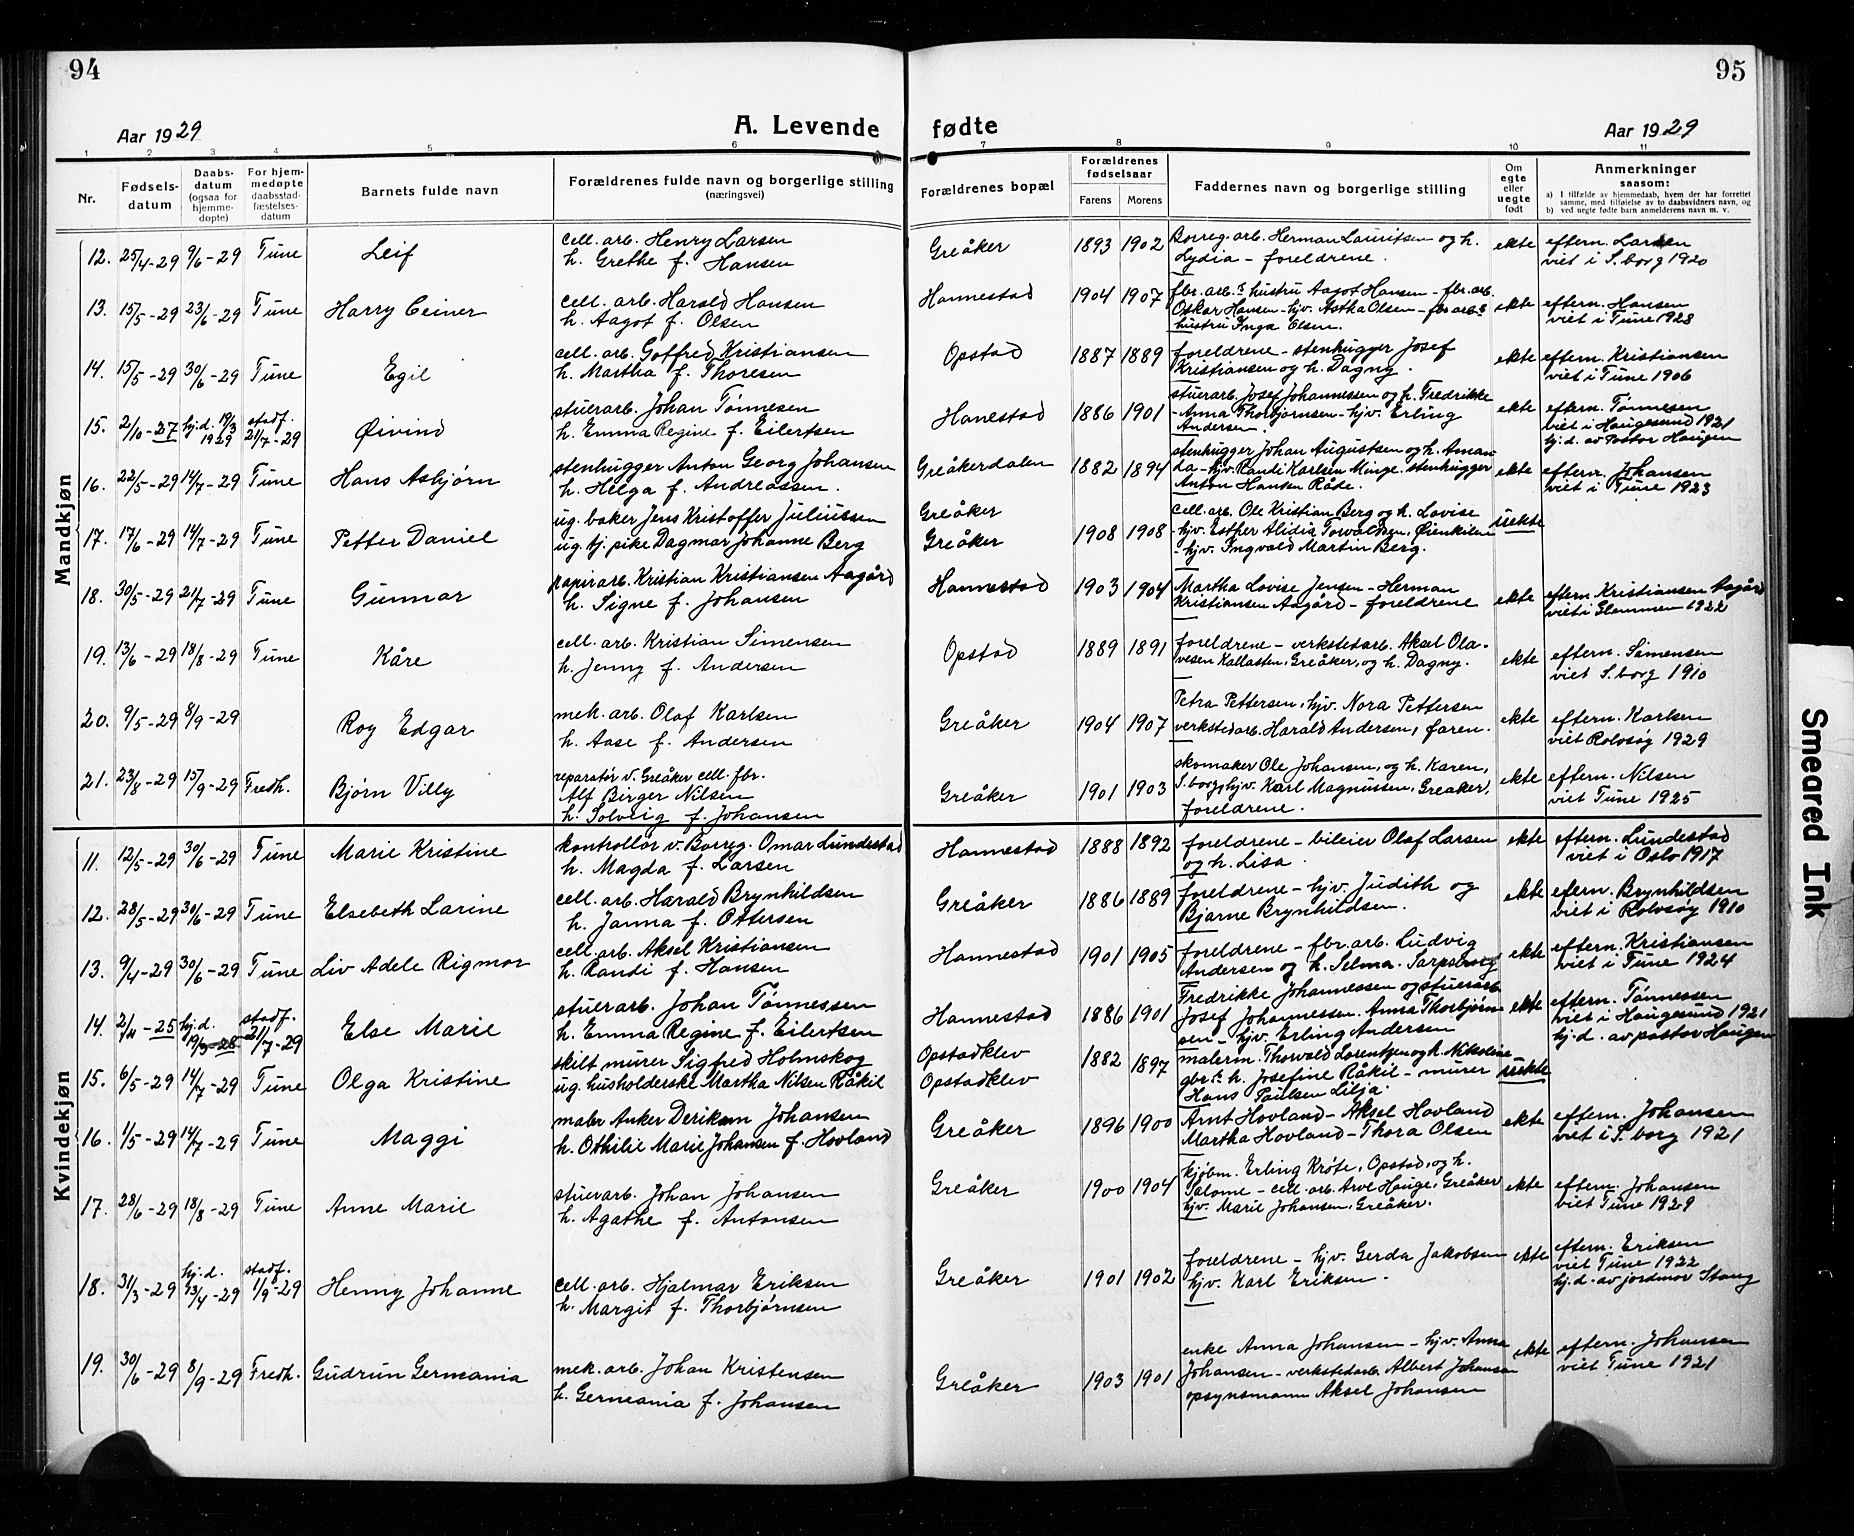 94
95
Aar 1929
A. Levende
fødte
Aar 1929
1 2 3 4 5 6 7 8 9 10 11
Nr.
Fødsels-
datum
Daabs-
datum
(ogsaa for
hjemme-
døpte)
For hjem-
medøpte
daabsstad-
fæstelses-
datum
Barnets fulde navn
Forældrenes fulde navn og borgerlige stilling
(næringsvei)
Forældrenes bopæl
Forældrenes
fødselsaar
Farens Morens
Faddernes navn og borgerlige stilling
Om
egte
eller
uegte
født
Anmerkninger
saasom:
a) I tilfælde av hjemmedaab, hvem der har forrettet
samme, med tilføielse av to daabsvidners navn, og
b) ved uegte fødte barn anmelderens navn m. v.
Mandkjøn
12. 25/4-29 9/6-29 Tune Leif
cell. arb. Henry Larsen
h. Grethe f. Hansen
Greåker 1893 1902
Borreg. arb. Herman Lauritsen og h.
Lydia – foreldrene.
ekte
eftern. Larsen
viet i S.borg 1920
13. 15/5-29 23/6-29 Tune Harry Ceiner
cell. arb. Harald Hansen
h. Aagot f. Olsen
Hannestad 1904 1907
fbr. arb.s hustru Aagot Hansen – fbr. arb.
Oskar Hansen – hjv. Astha Olsen – fbr. arb.s
hustru Inga Olsen.
ekte
eftern. Hansen
viet i Tune 1928
14. 15/5-29 30/6-29 Tune Egil
cell. arb. Gotfred Kristiansen
h. Martha f. Thoresen
Opstad 1887 1889
foreldrene – stenhugger Josef
Kristiansen og h. Dagny.
ekte
eftern. Kristiansen
viet i Tune 1906
15. 2/10-27 hj.d. 19/3 1929 stadf. 21/7-29 Øivind
stuerarb. Johan Tønnesen
h. Emma Regine f. Eilertsen
Hanestad 1886 1901
stuerarb. Josef Johannessen og h. Fredrikke
– Anna Thorbjørnsen – hjv. Erling
Andersen.
ekte
eftern. Tønnesen
viet i Haugesund 1921
hj.d. av Pastor Haugen
16. 22/5-29 14/7-29 Tune Hans Asbjørn
stenhugger Anton Georg Johansen
h. Helga f. Andreassen.
Greåkerdalen 1882 1894
stenhugger Johan Augustsen og h. Aman
da – hjv. Randi Karlsen Minge. stenhugger
Anton Hansen Råde.
ekte
eftern. Johansen
viet i Tune 1923
17. 17/6-29 14/7-29 Tune Petter Daniel
ug. baker Jens Kristoffer Juliussen
ug. tj. pike Dagmar Johanne Berg
Greåker
Greåker 1908 1908
cell. arb. Ole Kristian Berg og h. Lovise
– hjv. Esther Alidia Torvaldsen, Øienkilen
– hjv. Ingvald Martin Berg.
uekte
18. 30/5-29 21/7-29 Tune Gunnar
papirarb. Kristian Kristiansen Aagård
h. Signe f. Johansen
Hannestad 1903 1904
Martha Lovise Jensen – Herman
Kristiansen Aagård – foreldrene
ekte
eftern Kristiansen Aagård
viet i Glemmen 1922
19. 13/6-29 18/8-29 Tune Kåre
cell. arb. Kristian Simensen
h. Jenny f. Andersen
Opstad 1889 1891
foreldrene – verkstedarb. Aksel Ola-
vesen Kallasten, Greåker, og h. Dagny.
ekte
eftern. Simensen
viet S.borg 1910
20. 9/5-29 8/9-29 Roy Edgar
mek. arb. Olaf Karlsen
h. Aase f. Andersen
Greåker 1904 1907
Petra Pettersen, hjv. Nora Pettersen
verkstedarb. Harald Andersen, faren.
ekte
eftern. Karlsen
viet Rolvsøy 1929
21. 23/8-29 15/9-29 Fredh. Bjørn Villy
reparatør v. Greåker cell. fbr.
Alf Birger Nilsen
h. Solveig f. Johansen
Greåker 1901 1903
skomaker Ole Johansen, og h. Karen,
S.borg, hjv. Karl Magnussen, Greaker,
foreldrene.
ekte
eftern. Nilsen
viet Tune 1925
Kvindekjøn
11. 12/5-29 30/6-29 Tune Marie Kristine
kontrollør v. Borreg. Omar Lundestad
h. Magda f. Larsen
Hannestad 1888 1892
foreldrene – bileier Olaf Larsen
og h. Lisa.
ekte
eftern. Lundestad
viet i Oslo 1917
12. 28/5-29 30/6-29 Tune Elsebeth Larine
cell. arb. Harald Brynhildsen
h. Janna f. Ottersen
Greåker 1886 1889
foreldrene – hjv. Judith og
Bjarne Brynhildsen.
ekte
efern. Brynhildsen
viet i Rolvsøy 1910
13. 9/4-29 30/6-29 Tune Liv Adele Rigmor
cell. arb. Aksel Kristiansen
h. Randi f. Hansen
Hannestad 1901 1905
foreldrene – fbr. arb. Ludvig
Andersen og h. Selma. Sarpsborg
ekte
eftern. Kristiansen
viet i Tune 1924
14. 2/4-25 hj.d. 19/3-28 stadf. 21/7-29 Else Marie
stuerarb. Johan Tønnessen
h. Emma Regine f. Eilertsen
Hannestad 1886 1901
Fredrikke Johannessen og stuerarb
Josef Johannessen. Anna Thorbjørn
sen – hjv. Erling Andersen
ekte
eftern. Tønnessen
viet i Haugesund 1921
hj.d. av pastor Haugen
15. 6/5-29 14/7-29 Tune Olga Kristine
skilt murer Sigfred Holmskog
ug. husholderske Martha Nilsen Råkil
Opstadklev
Opstadklev 1882 1897
malerm. Thorvald Lorentzen og h. Nikoline
gbr.s h. Josefine Råkil – murer
Hans Paulsen Lilja.
uekte
16. 1/5-29 14/7-29 Tune Maggi
maler Anker Johansen
h. Othilie Marie Johansen f. Hovland
Greåker 1896 1900
Arnt Hovland – Aksel Hovland
Martha Hovland – Thora Olsen
ekte
eftern. Johansen
viet i S.borg 1921
17. 28/6-29 18/8-29 Tune Anne Marie
stuerarb. Johan Johansen
h. Agathe f. Antonsen
Greåker 1900 1904
kjøbm. Erling Krøte, Opstad, og h.
Salome – cell. arb. Arve Hauge, Greåker
hjv. Marie Johansen, Greåker.
ekte
eftern. Johansen
viet Tune 1929
18. 31/3-29 hj.d. 23/4-29 stadf. 1/9-29 Henny Johanne
cell. arb. Hjalmar Eriksen
h. Margit f. Thorbjørnsen
Greåker 1901 1902
foreldrene – hjv. Gerda Jakobsen
hjv. Karl Eriksen.
ekte
eftern. Eriksen
viet Tune 1922
hj.d. av jordmor Stang
19. 30/6-29 8/9-29 Fredh. Gudrun Germania
mek. arb. Johan Kristensen
h. Germania f. Johansen
Greåker 1903 1901
enke Anna Johansen – hjv. Anna
Johansen – verkstedarb. Albert Johansen
opsynsmann Aksel Johansen
ekte
eftern. Johansen
viet Tune 1921
Smeared Ink